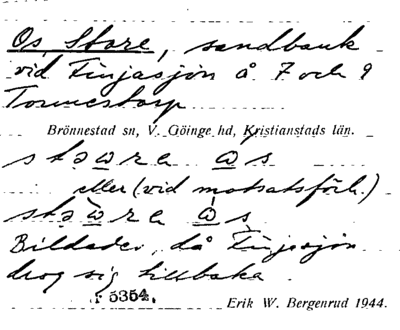 Os, Store, sandbank
vid Finjasjön å 7 och 9
Tormestorp
Brönnestad sn, V. Göinge hd, Kristianstads län.
eller (vid motsatsförh.)
Bildades, då Finjasjön
drog sig tillbaka.
5354.
Erik W. Bergenrud 1944.